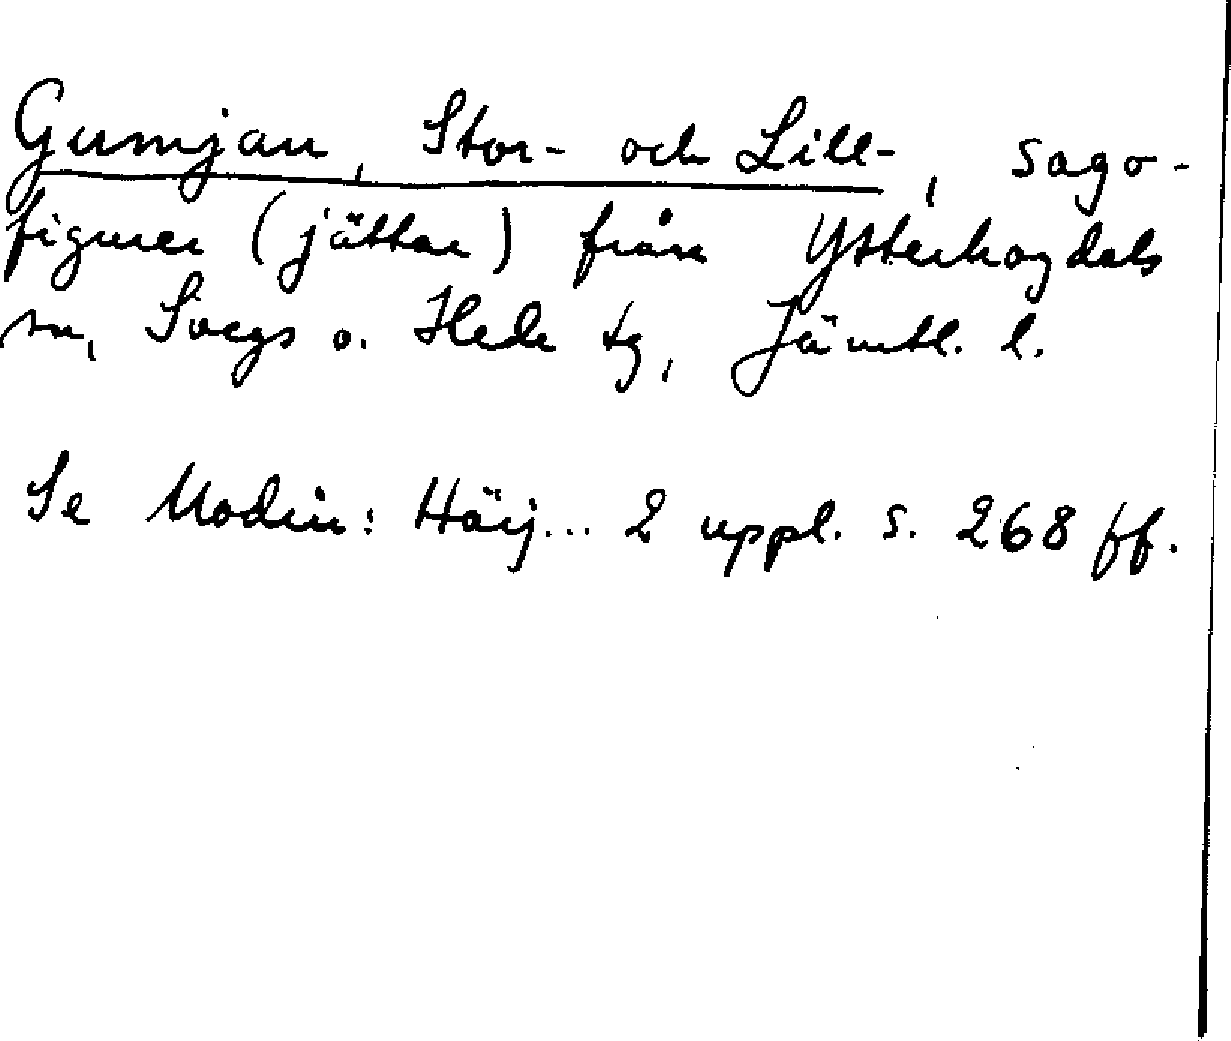 Gumjan, Stor- och Lill-, sago-
figurer (jättar) från Ytterhogdals
sn, Svegs o. Hede tg, Jämtl. l.
Se Modin: Härj... 2 uppl. s. 268 ff.